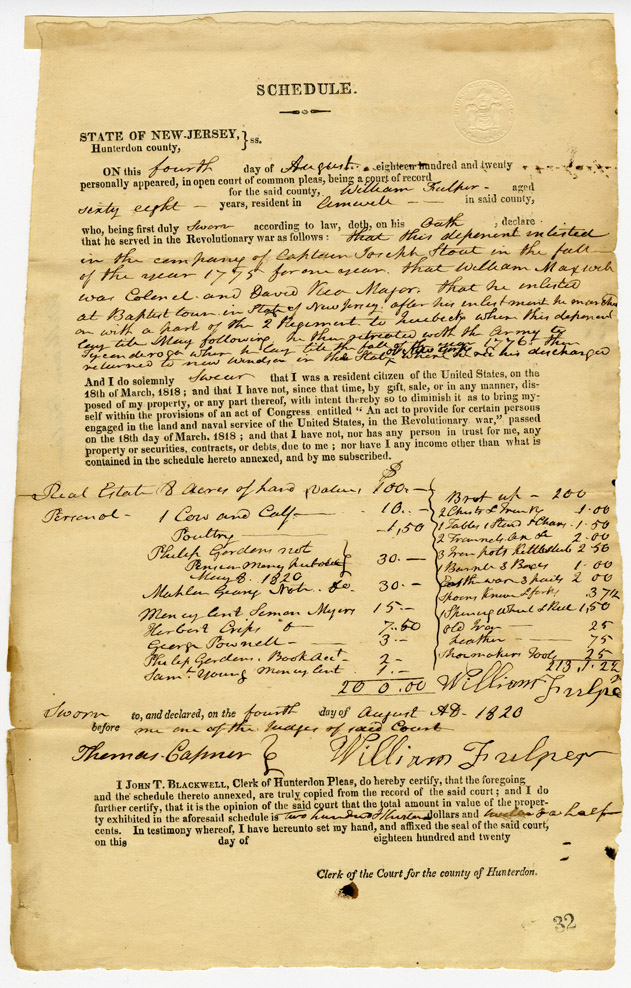 SCHEDULE.
STATE OF NEW-JERSEY, } ss.
Hunterdon county,
ON this fourth day of August eighteen hundred and twenty
personally appeared, in open court of common pleas, being a court of record
for the said county, William Fulper aged
sixty eight years, resident in Amwell in said county,
who, being first duly Sworn according to law, doth, on his Oath, declare
that he served in the Revolutionary war as follows: that this deponent enlisted
in the company of Captain Joseph Stout in the fall
of the year 1775 for one year. that William Maxwell
was Colonel and David Rea Major. that he enlisted
at Baptist town in State of New Jersey, after his enlistment he marched
on with a part of the 2 Regiment to Quebeck when this deponent
lay till May following he then retreated with the Army to
Ticonderoga where he lay till the fall of the year 1776. then
returned to new Windsor in the State his discharged
And I do solemnly Swear that I was a resident citizen of the United States, on the
18th of March, 1818; and that I have not, since that time, by gift, sale, or in any manner, dis-
posed of my property, or any part thereof, with intent thereby so to diminish it as to bring my-
self within the provisions of an act of Congress, entitled "An act to provide for certain persons
engaged in the land and naval service of the United States, in the Revolutionary war," passed
on the 18th day of March, 1818; and that I have not, nor has any person in trust for me, any
property or securities, contracts, or debts, due to me; nor have I any income other than what is
contained in the schedule hereto annexed, and by me subscribed.
$
Real Estate 8 Acres of land value 100.-
Personal - 1 Cow and Calf - 10.-
Poultry - 1,50
Philip Gordens not
Pension Money
May 8. 1820 } 30.-
Mahlon Geary Note. do. 30.-
Money lent Simon Myers 15.-
Herbert Crips do 7.50
George Pownell - 3.-
Philip Gordens. Book Act 2-
Saml Young Money lent 1.-
200.00
Brot up - 200
2 Chests & 1.00
1 Table 1 Stand & Chairs. 1.50
2 Trammels 2.00
3 Iron pots Kettles 2 50
1 Barrel 3 Boxes 1.00
Earthenware 3 pails 2 00
Spoons Knives & forks .37½
1 Spinning Wheel & Reel 1,50
old Iron - 25
Leather - 75
Shoemakers Tools 25
William Fulper
Sworn to, and declared, on the fourth day of August AD. 1820
before me one of the Judges of said Court
Thomas Capner }
William Fulper
I JOHN T. BLACKWELL, Clerk of Hunterdon Pleas, do hereby certify, that the foregoing
and the schedule thereto annexed, are truly copied from the record of the said court; and I do
further certify, that it is the opinion of the said court that the total amount in value of the proper-
ty exhibited in the aforesaid schedule is two hundred & thirteen dollars and & a half
cents. In testimony whereof, I have hereunto set my hand, and affixed the seal of the said court,
on this day of eighteen hundred and twenty
Clerk of the Court for the county of Hunterdon.
32